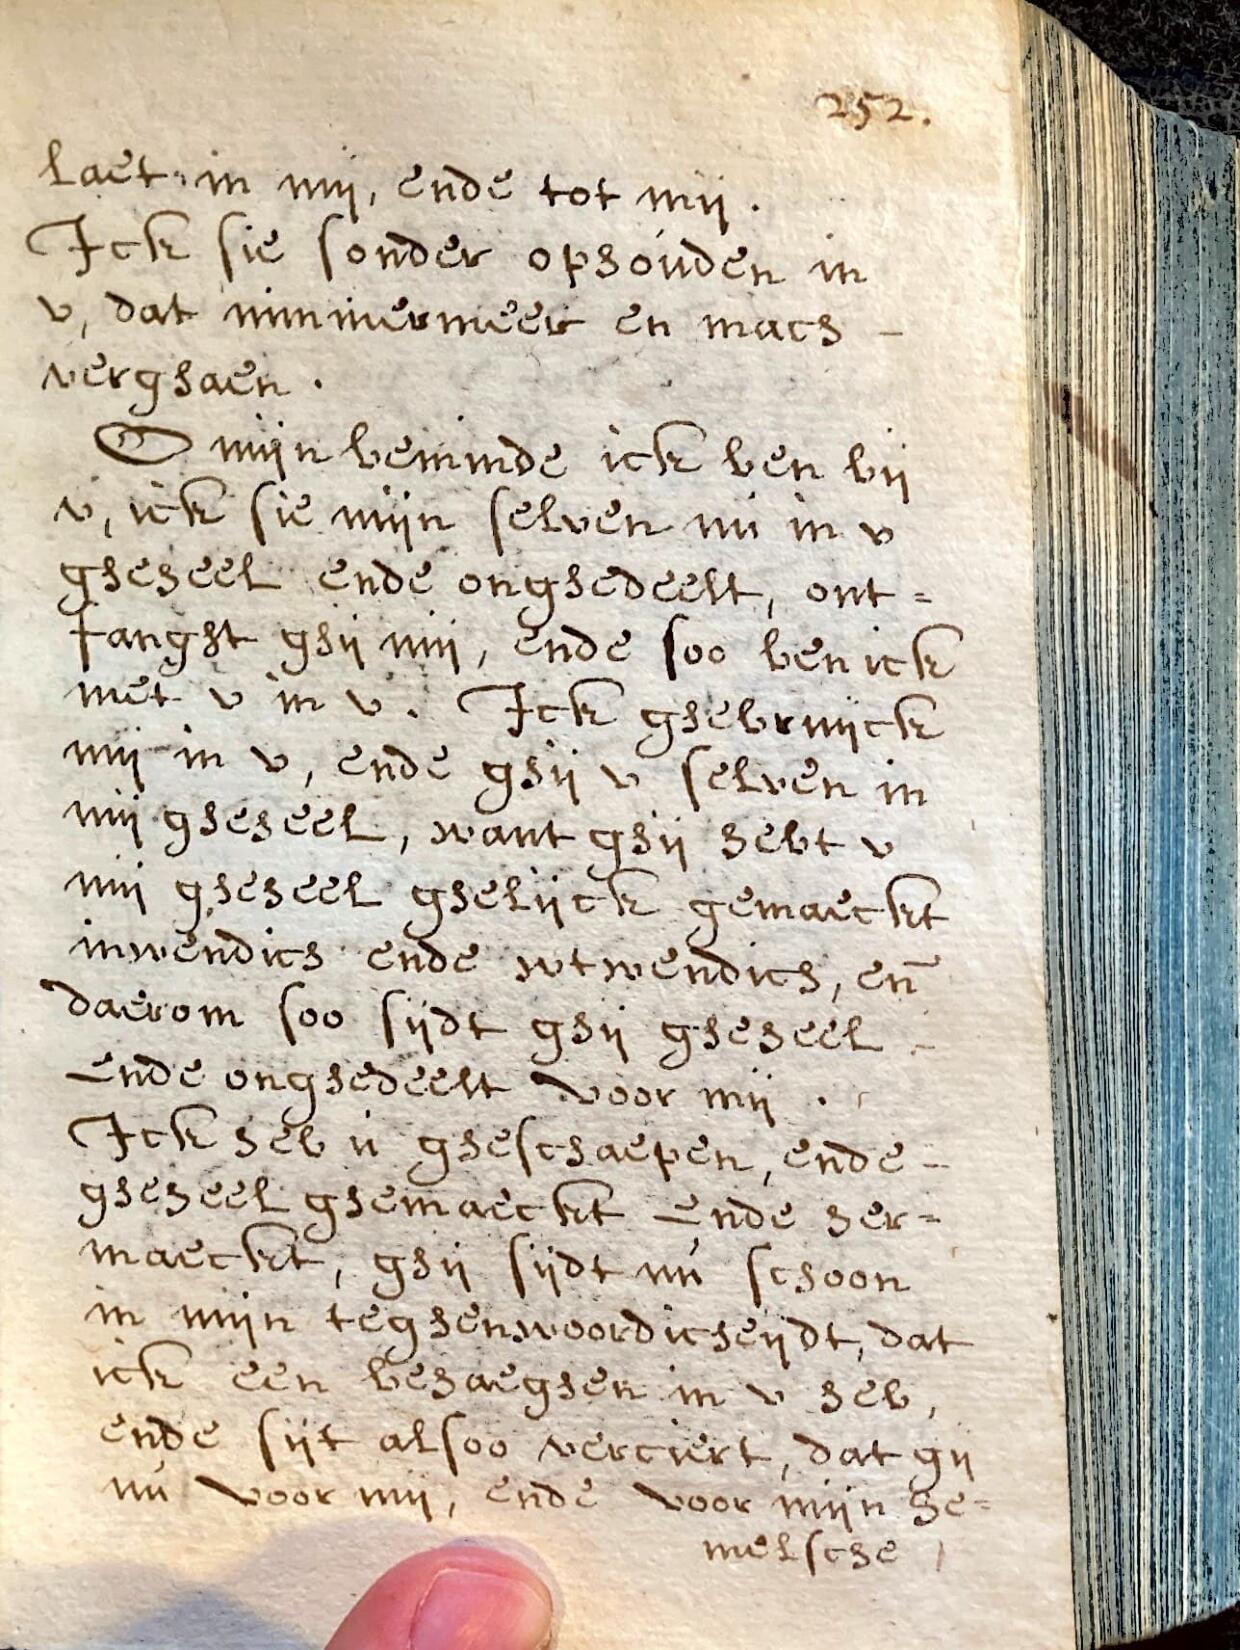 252.
laet in mij, ende tot mij.
Ick sie sonder ophouden in
v, dat nimmermeer en mach -
verghaen.
O mijn beminde ick ben bij
v, ick sie mijn selven nú in v
gheheel ende onghedeelt, ont=
fanght ghij mij, ende soo ben ick
met v in v. Ick ghebruijck
mij in v, ende ghij v selven in
mij gheheel, want ghij hebt v
mij gheheel ghelijck gemaeckt
inwendich ende wtwendich, en̄
daerom soo sijdt ghij gheheel -
ende onghedeelt voor mij.
Ick heb ú gheschaepen, ende -
gheheel ghemaeckt ende her=
maeckt, ghij sijdt nú schoon
in mijn teghenwoordicheijdt, dat
ick een behaeghen in v heb,
ende sijt alsoo verciert, dat gij
nú voor mij, ende voor mijn he=
melsche